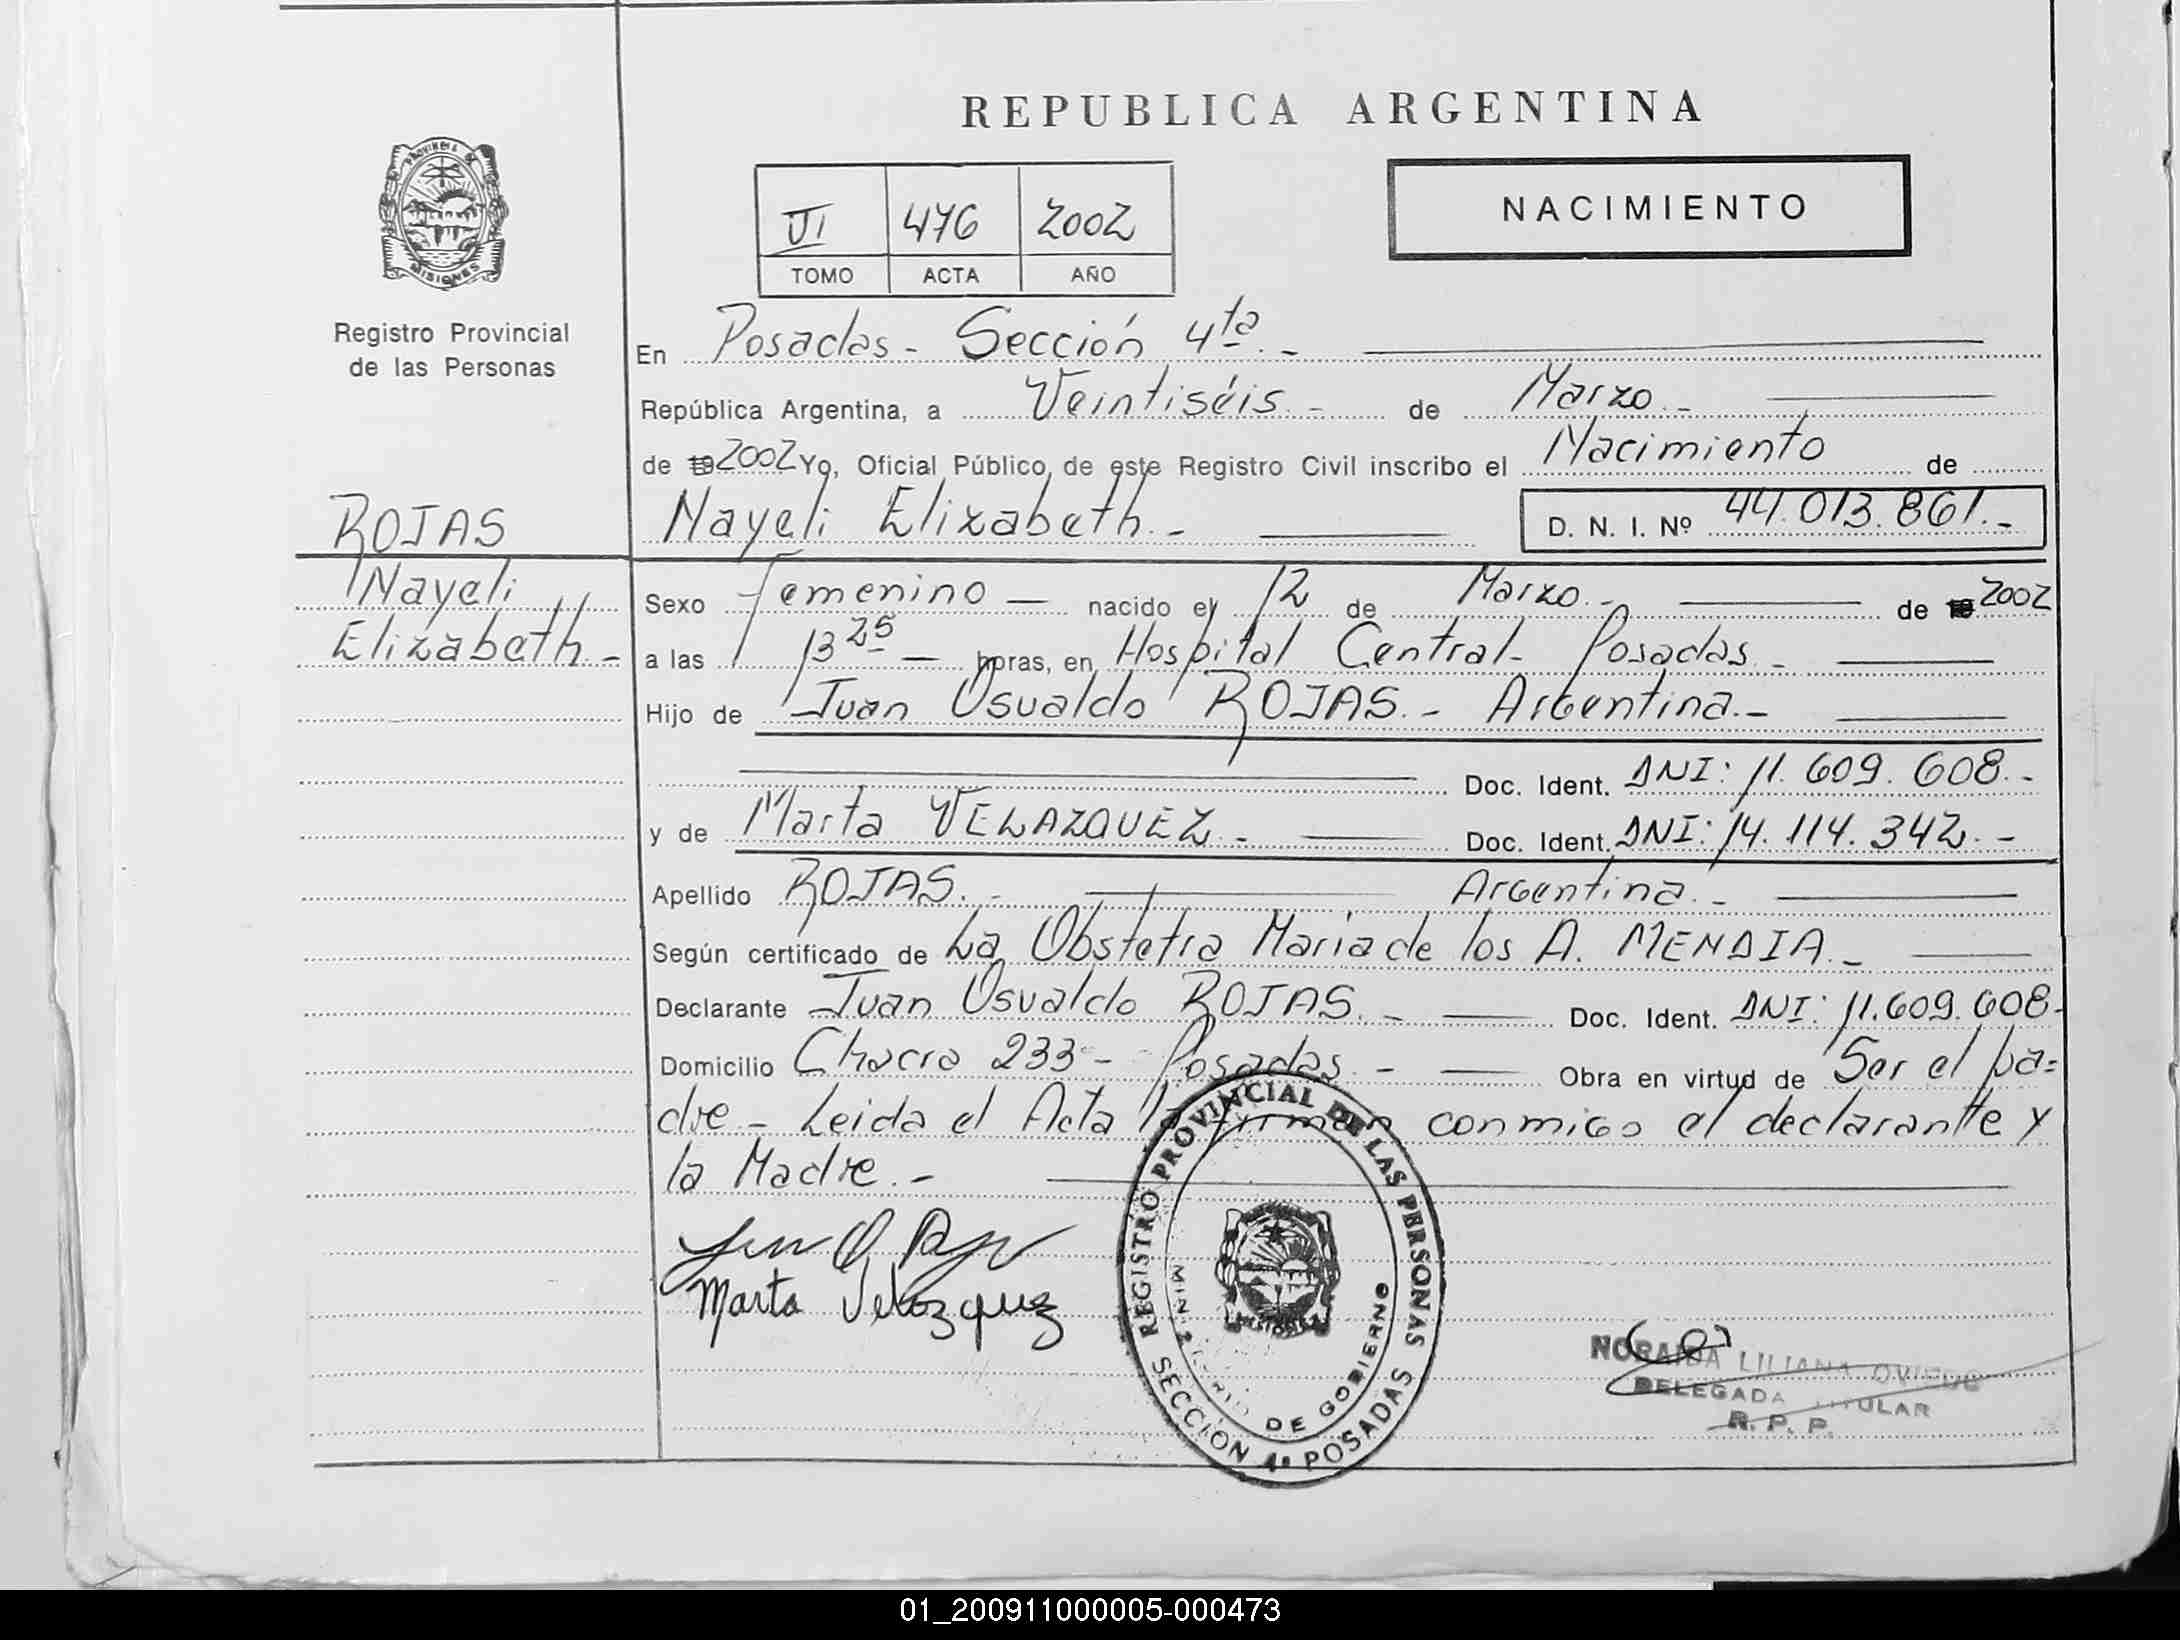 REPUBLICA ARGENTINA
PROVINCIA DE
MISIONES
VI 476 2002
TOMO ACTA AÑO
NACIMIENTO
Registro Provincial
de las Personas
En Posadas - Sección 4ta. -
República Argentina, a Veintiséis. - de Marzo. -
de 19 2002 Yo, Oficial Público, de este Registro Civil inscribo el Nacimiento de
ROJAS
Nayeli Elizabeth. - D. N. I. Nº 44.013.861. -
Nayeli
Elizabeth. -
Sexo Femenino — nacido el 12 de Marzo. - de 19 2002
a las 13 25 — horas, en Hospital Central - Posadas. -
Hijo de Juan Osvaldo ROJAS. - Argentina. -
Doc. Ident. DNI: 11.609.608. -
y de Marta VELAZQUEZ. - Doc. Ident. DNI: 14.114.342. -
Apellido ROJAS. - Argentina. -
Según certificado de La Obstetra Maria de los A. MENDIA. -
Declarante Juan Osvaldo ROJAS. - Doc. Ident. DNI: 11.609.608-
Domicilio Chacra 233 - Posadas. - Obra en virtud de Ser el pa=
dre - Leida el Acta la firman conmigo el declarante y
la Madre. -
Marta Velazquez
REGISTRO PROVINCIAL DE LAS PERSONAS
MINISTERIO DE GOBIERNO
SECCION 4ª POSADAS
NORAIDA LILIANA OVIEDO
DELEGADA TITULAR
R. P. P.
01_200911000005-000473